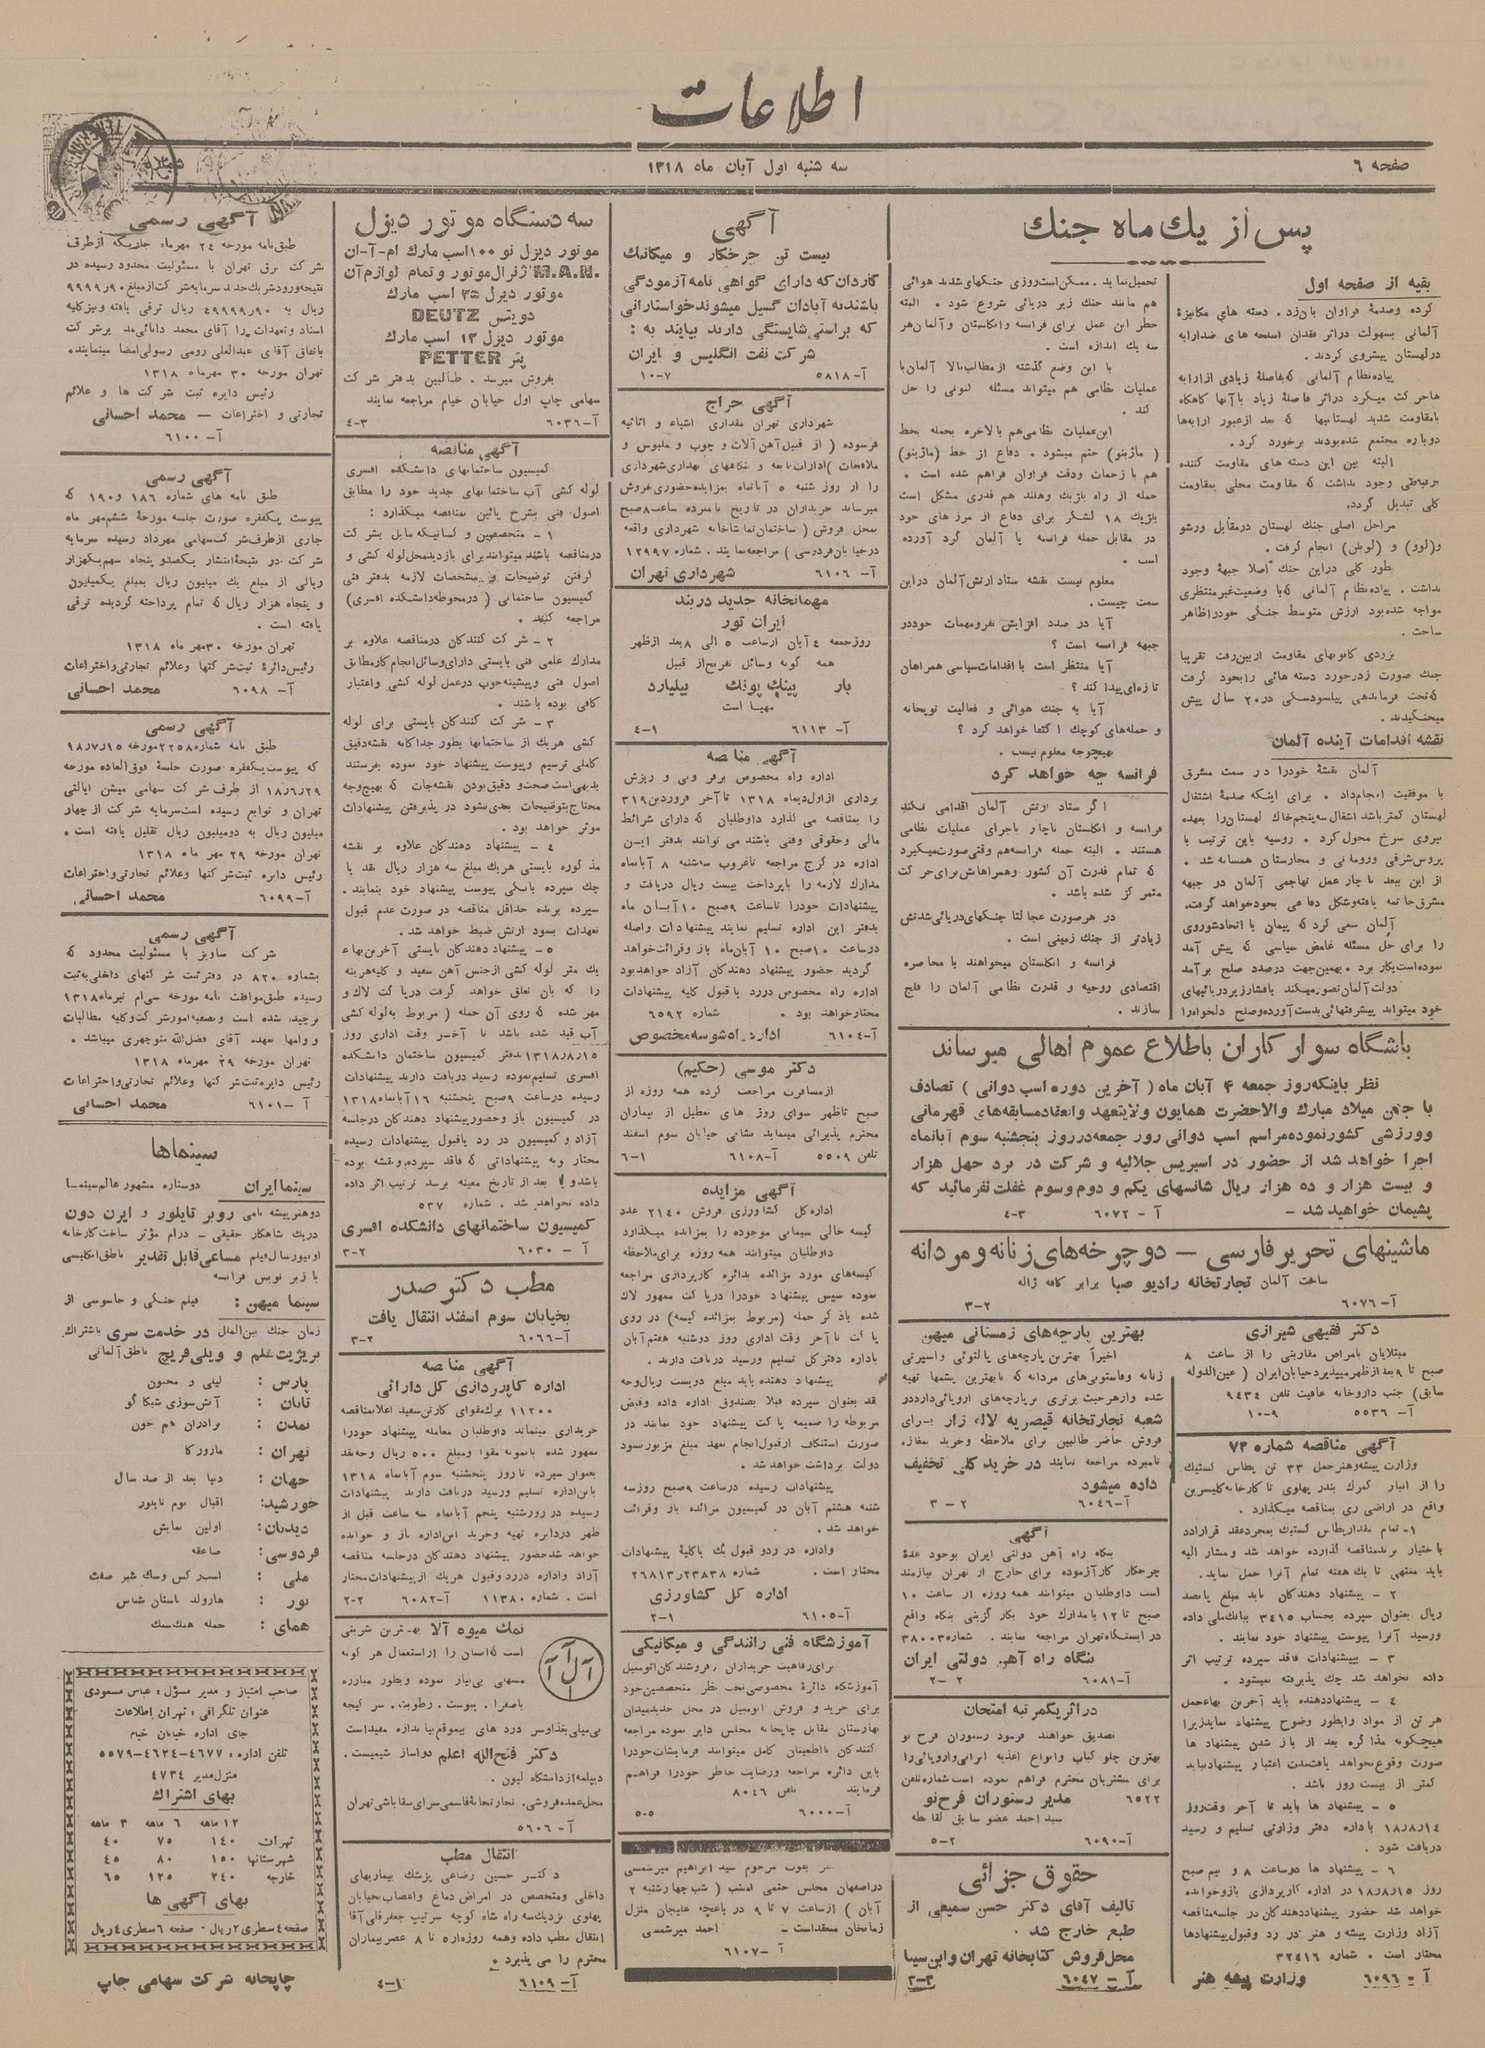 اطلاعات
صفحه ۶
سه شنبه اول آبان ماه ۱۳۱۸
پس از یك ماه جنك
بقیه از صفحه اول
کرده وصدمهٔ فراوان بآن زد. دسته های مکانیزهٔ
آلمانی بسهولت دراثر فقدان اسلحه های ضد ارابه
در لهستان پیشروی کردند.
پیاده نظام آلمانی که بفاصلهٔ زیادی از ارابه
دوباره مجتمع شده بودند برخورد کرد.
البته بین این دسته های مقاومت کننده
ارتباطی وجود نداشت که مقاومت محلی بمقاومت
کلی تبدیل گردد.
مراحل اصلی جنك لهستان در مقابل ورشو
و(لوو) و (لوبلن) انجام گرفت.
بطور کلی دراین جنك اصلا جبههٔ وجود
نداشت. پیاده نظام آلمانی که با وضعیت غیرمنتظری
مواجه شده بود ارزش متوسط جنگی خود را ظاهر
ساخت.
نقشه اقدامات آینده آلمان
آلمان نقشهٔ خود را در سمت مشرق
با موفقیت انجام داد. برای اینکه صدمهٔ اشتغال
نیروی سرخ محول کرد. روسیه باین ترتیب با
پروس شرقی ورومانی و مجارستان همسایه شد.
از این ببعد ناچار عمل تهاجمی آلمان در جبهه
آلمان سعی کرد که پیمان با اتحاد شوروی
را برای حل مسئله غامض سیاسی که پیش آمد
خود میتواند پیشرفتهائی بدست آورده وصلح دلخواه را
تحمیل نماید. ممکن است روزی جنگهای شدید هوائی
هم مانند جنك زیر دریائی شروع شود. البته
خطر این عمل برای فرانسه وانگلستان وآلمان هر
سه یك اندازه است.
با این وضع گذشته از مطالب بالا آلمان با
عملیات نظامی هم میتواند مسئله کنونی را حل
کند.
این عملیات نظامی هم بالاخره بحمله بخط
(ماژینو) ختم میشود. دفاع از خط (ماژینو)
هم با زحمات ودقت فراوان فراهم شده است.
حمله از راه بلژیك وهلند هم قدری مشکل است
بلژیك ۱۸ لشگر برای دفاع از مرز های خود
در مقابل حمله فرانسه یا آلمان گرد آورده
است.
معلوم نیست نقشه ستاد ارتش آلمان دراین
سمت چیست.
آیا در صدد افزایش نفرومهمات خود در
جبهه فرانسه است؟
آیا منتظر است با اقدامات سیاسی همراهان
تازه‌ای پیدا کند؟
آیا به جنك هوائی و فعالیت توپخانه
و حمله‌های کوچك اکتفا خواهد کرد؟
بهیچوجه معلوم نیست.
فرانسه چه خواهد کرد
اگر ستاد ارتش آلمان اقدامی نکند
فرانسه و انگلستان ناچار باجرای عملیات نظامی
هستند. البته حمله فرانسه هم وقتی صورت میگیرد
که تمام قدرت آن کشور وهمراهانش برای حرکت
متمرکز شده باشد.
در هرصورت عجالتا جنگهای دریائی شدتش
زیادتر از جنك زمینی است.
فرانسه و انگلستان میخواهند با محاصره
اقتصادی روحیه و قدرت نظامی آلمان را فلج
سازند.
باشگاه سوارکاران باطلاع عموم اهالی میرساند
نظر باینکه روز جمعه ۴ آبان ماه (آخرین دوره اسب دوانی) تصادف
با جشن میلاد مبارك والاحضرت همایون ولایتعهد وانعقاد مسابقه‌های قهرمانی
وورزشی کشور نموده مراسم اسب دوانی روز جمعه در روز پنجشنبه سوم آبانماه
اجرا خواهد شد از حضور در اسپریس جلالیه و شرکت در برد چهل هزار
و بیست هزار و ده هزار ریال شانسهای یکم و دوم وسوم غفلت نفرمائید که
پشیمان خواهید شد – آ – ۶۰۷۲ ۴-۳
ماشینهای تحریر فارسی – دوچرخه‌های زنانه و مردانه
ساخت آلمان تجارتخانه رادیو صبا برابر کافه ژاله
آ-۶۰۷۶ ۳-۲
دکتر فقیهی شیرازی
مبتلایان بامراض مقاربتی را از ساعت ۸
صبح تا ۹ بعد از ظهر میپذیرد خیابان ایران (عین الدوله
سابق) جنب داروخانه عافیت تلفن ۹۴۳۴
آ- ۵۵۳۶ ۱۰-۹
آگهی مناقصه شماره ۷۳
وزارت پیشه وهنر حمل ۳۳ تن پطاس کستیك
را از انبار گمرك بندر پهلوی تا کارخانه گلیسرین
واقع در اراضی ری بمناقصه میگذارد.
۱- تمام مقدار پطاس کستیك بمجرد عقد قرارداد
باختیار برنده مناقصه گذارده خواهد شد و مشار الیه
باید منتهی تا یك هفته تمام آنرا حمل نماید.
۲ – پیشنهاد دهندگان باید مبلغ پانصد
ریال بعنوان سپرده بحساب ۳۴۱۵ ببانك ملی داده
ورسید آنرا پیوست پیشنهاد خود نمایند.
۳ – بپیشنهادات فاقد سپرده ترتیب اثر
داده نخواهد شد چك پذیرفته نمیشود.
۴ – پیشنهاد دهنده باید آخرین بهاء حمل
هر تن از مواد را بطور وضوح پیشنهاد نماید زیرا
هیچگونه مذاکره بعد از باز شدن پیشنهاد ها
صورت وقوع نخواهد یافت مدت اعتبار پیشنهاد نباید
کمتر از بیست روز باشد.
۵ – پیشنهاد ها باید تا آخر وقت روز
۱۸ر۸ر۱۴ باداره دفتر وزارتی تسلیم و رسید
دریافت شود.
۶ – پیشنهاد ها در ساعت ۸ و نیم صبح
روز ۱۸ر۸ر۱۵ در اداره کارپردازی باز وخوانده
خواهد شد حضور پیشنهاد دهندگان در جلسه مناقصه
آزاد وزارت پیشه و هنر در رد وقبول پیشنهادها
مختار است. شماره ۳۲۴۱۶
آ – ۶۰۹۶ وزارت پیشه هنر
بهترین پارچه‌های زمستانی میهن
اخیراً بهترین پارچه‌های پالتوئی واسپرتی
زنانه وفاستونی‌های مردانه که با بهترین پشمها تهیه
شده وازهرحیث برتری بر پارچه‌های اروپائی دارد در
شعبه تجارتخانه قیصریه لاله زار برای
فروش حاضر طالبین برای ملاحظه وخرید بمغازه
نامبرده مراجعه نمایند در خرید کلی تخفیف
داده میشود
آ-۶۰۴۶ ۲ – ۳
آگهی
بنگاه راه آهن دولتی ایران بوجود عدهٔ
چرخکار کارآزموده برای خارج از تهران نیازمند
است داوطلبان میتوانند همه روزه از ساعت ۱۰
صبح تا ۱۲ با مدارك خود بکار گزینی بنگاه واقع
در ایستگاه تهران مراجعه نمایند. شماره ۳۸۰۰۳
بنگاه راه آهن دولتی ایران
آ-۶۰۸۱ ۲-۲
در اثر یکمرتبه امتحان
تصدیق خواهند فرمود رستوران فرح نو
بهترین چلو کباب وانواع اغذیه ایرانی واروپائی را
برای مشتریان محترم فراهم نموده است شماره تلفن
۶۵۲۲ مدیر رستوران فرح نو
سید احمد عضو سابق لقانطه
آ-۶۰۹۰ ۵-۲
حقوق جزائی
تالیف آقای دکتر حسن سمیعی از
طبع خارج شد.
محل فروش کتابخانه تهران وابن سینا
آ – ۶۰۴۷ ۳-۳
آگهی
بیست تن چرخکار و میکانیك
کاردان که دارای گواهی نامه آزمودگی
باشند به آبادان گسیل میشوند خواستارانی
که براستی شایستگی دارند بیایند به:
شرکت نفت انگلیس و ایران
آ-۵۸۱۸ ۱۰-۷
آگهی حراج
شهرداری تهران مقداری اشیاء و اثاثیه
فرسوده (از قبیل آهن آلات و چوب و ملبوس و
ملافجات) ادارات تابعه و بنگاههای بهداری شهرداری
را از روز شنبه ۵ آبانماه بمزایده حضوری فروش
میرساند خریداران در تاریخ نامبرده ساعت ۸ صبح
بمحل فروش (ساختمان نماشاخانه شهرداری واقعه
در خیابان فردوسی) مراجعه نمایند. شماره ۱۲۹۹۷
آ- ۶۱۰۶ شهرداری تهران
مهمانخانه جدید دربند
ایران تور
روز جمعه ۴ آبان از ساعت ۵ الی ۸ بعد از ظهر
همه گونه وسائل تفریح از قبیل
بار پینك پونك بیلیارد
مهیا است
آ- ۶۱۱۳ ۴-۱
آگهی مناقصه
اداره راه مخصوص برفروبی و ریزش
برداری از اول دیماه ۱۳۱۸ تا آخر فروردین ۳۱۹
را بمناقصه می گذارد داوطلبان که دارای شرائط
مالی وحقوقی وفنی باشند می توانند بدفتر این
اداره در کرج مراجعه تا غروب سه شنبه ۸ آبانماه
مدارك لازمه را با پرداخت بیست ریال دریافت و
پیشنهادات خود را تا ساعت ۹ صبح ۱۰ آبان ماه
بدفتر این اداره تسلیم نمایند پیشنهادات واصله
در ساعت ۱۰ صبح ۱۰ آبان ماه باز وقرائت خواهد
گردید حضور پیشنهاد دهندگان آزاد خواهد بود
اداره راه مخصوص دررد یا قبول کلیه پیشنهادات
مختار خواهد بود. شماره ۶۵۹۲
آ-۶۱۰۴ اداره راه شوسه مخصوص
دکتر موسی (حکیم)
از مسافرت مراجعت کرده همه روزه از
صبح تا ظهر سوای روز های تعطیل از بیماران
محترم پذیرائی مینماید نشانی خیابان سوم اسفند
تلفن ۵۵۰۹ آ-۶۱۰۸ ۶-۱
آگهی مزایده
اداره کل کشاورزی فروش ۲۱۴۰ عدد
کیسه خالی سیمانی موجوده را بمزایده میگذارد
داوطلبان میتوانند همه روزه برای ملاحظه
کیسه‌های مورد مزائده بدائره کارپردازی مراجعه
نموده سپس پیشنهاد خود را در پاکت ممهور لاك
شده با ذکر جمله (مربوط بمزائده کیسه) در روی
پاکت تا آخر وقت اداری روز دوشنبه هفتم آبان
باداره دفتر کل تسلیم ورسید دریافت دارند.
پیشنهاد دهنده باید مبلغ دویست ریال وجه
نقد بعنوان سپرده قبلا بصندوق اداره داده وقبض
مربوطه را ضمیمه پاکت پیشنهاد خود نمایند در
صورت استنکاف از قبول انجام تعهد مبلغ مزبور بسود
دولت برداشت خواهد شد.
پیشنهادات رسیده در ساعت ۹ صبح روز سه
شنبه هشتم آبان در کمیسیون مزائده باز وقرائت
خواهد شد.
واداره در ردو قبول یك یا کلیهٔ پیشنهادات
مختار است. شماره ۲۳۸۳۸ر۲۶۸۱۳
اداره کل کشاورزی
آ-۶۱۰۵ ۲-۱
آموزشگاه فنی رانندگی و میکانیکی
برای رفاهیت خریداران و فروشندگان اتومبیل
آموزشگاه دائرهٔ مخصوصی تحت نظر متخصصین خود
برای خرید و فروش اتومبیل در محل جدید میدان
بهارستان مقابل چاپخانه مجلس دایر نموده مراجعه
کنندگان با اطمینان کامل میتوانند فرمایشات خود را
باین دائره مراجعه ورضایت خاطر خود را فراهم
فرمایند تلفن ۸۰۴۶
آ-۶۰۰۰ ۵-۵
بر فوت مرحوم سید ابراهیم میرشمسی
در اصفهان مجلس ختمی امشب (شب چهارشنبه ۲
آبان) از ساعت ۷ تا ۹ در باغچه علیجان منزل
زمانخان منعقد است – احمد میرشمسی
آ – ۶۱۰۷
سه دستگاه موتور دیزل
موتور دیزل نو ۱۰۰ اسب مارك ام-آ-ان
M.A.N. ژنرال موتور و تمام لوازم آن
موتور دیزل ۳۵ اسب مارك
دویتس DEUTZ
موتور دیزل ۱۲ اسب مارك
پتر PETTER
بفروش میرسد. طالبین بدفتر شرکت
سهامی چاپ اول خیابان خیام مراجعه نمایند
آ-۶۰۳۶ ۴-۳
آگهی مناقصه
کمیسیون ساختمانهای دانشکده افسری
لوله کشی آب ساختمانهای جدید خود را مطابق
اصول فنی بشرح پائین بمناقصه میگذارد:
۱ – متخصصین و کسانیکه مایل بشرکت
در مناقصه باشند میتوانند برای بازدید محل لوله کشی و
گرفتن توضیحات و مشخصات لازمه بدفتر فنی
کمیسیون ساختمانی (در محوطه دانشکده افسری)
مراجعه کنند.
۲ – شرکت کنندگان در مناقصه علاوه بر
مدارك علمی فنی بایستی دارای وسائل انجام کار مطابق
اصول فنی وپیشینه خوب در عمل لوله کشی واعتبار
کافی بوده باشند.
۳ – شرکت کنندگان بایستی برای لوله
کشی هریك از ساختمانها بطور جداگانه نقشه دقیق
کاملی ترسیم وپیوست پیشنهاد خود نموده بفرستند
بدیهی است صحت و دقیق بودن نقشه جات که بهیچوجه
محتاج بتوضیحات بعدی نشود در پذیرفتن پیشنهادات
موثر خواهد بود.
۴ – پیشنهاد دهندگان علاوه بر نقشه
مذکوره بایستی هریك مبلغ سه هزار ریال نقد یا
چك سپرده بانکی پیوست پیشنهاد خود بنمایند.
سپرده برنده حداقل مناقصه در صورت عدم قبول
تعهدات بسود ارتش ضبط خواهد شد.
۵ – پیشنهاد دهندگان بایستی آخرین بهاء
یك متر لوله کشی از جنس آهن سفید و کلیه هزینه
را که بآن تعلق خواهد گرفت در پاکت لاك و
مهر شده که روی آن جمله (مربوط به لوله کشی
آب قید شده باشد تا آخر وقت اداری روز
۱۳۱۸ر۸ر۱۵ بدفتر کمیسیون ساختمان دانشکده
افسری تسلیم نموده رسید دریافت دارند پیشنهادات
رسیده در ساعت ۹ صبح پنجشنبه ۱۶ آبانماه ۱۳۱۸
در کمیسیون باز وحضور پیشنهاد دهندگان در جلسه
آزاد و کمیسیون در رد یا قبول پیشنهادات رسیده
مختار وبه پیشنهاداتی که فاقد سپرده ونقشه بوده
باشد و یا بعد از تاریخ معینه برسد ترتیب اثر داده
داده نخواهد شد. شماره ۵۳۷
کمیسیون ساختمانهای دانشکده افسری
آ – ۶۰۳۰ ۳-۲
مطب دکتر صدر
بخیابان سوم اسفند انتقال یافت
آ-۶۰۶۶ ۳-۲
آگهی مناقصه
اداره کارپردازی کل دارائی
۱۱۲۰۰ برك مقوای کارتن سفید اعلا بمناقصه
خریداری مینماید داوطلبان معامله پیشنهاد خود را
ممهور شده با نمونه مقوا ومبلغ ۵۰۰ ریال وجه نقد
بعنوان سپرده تا روز پنجشنبه سوم آبانماه ۱۳۱۸
باین اداره تسلیم ورسید دریافت دارند پیشنهادات
رسیده در روز شنبه پنجم آبانماه سه ساعت قبل از
ظهر در دایره تهیه وخرید این اداره باز و خوانده
خواهد شد حضور پیشنهاد دهندگان در جلسه مناقصه
آزاد واداره در رد وقبول هریك از پیشنهادات مختار
است. شماره ۱۱۳۸۰ آ-۶۰۸۲ ۲-۲
نمك میوه آلا بهترین شربتی
است که انسان را از استعمال هر گونه
مسهلی بی نیاز نموده وبطور مبارزه
باصفرا. یبوست. رطوبت. سرگیجه
بی میلی بغذا وسر درد های بیموقع بی اندازه مفید است
آلآ
دکتر فتح‌الله اعلم دواساز شیمیست.
دیپلمه از دانشگاه لیون.
محل عمده فروشی. تجارتخانهٔ قاسمی سرای سقاباشی تهران
آ- ۵۶۰۶
انتقال مطب
دکتر حسین رضاعی پزشك بیماریهای
داخلی ومتخصص در امراض دماغ واعصاب خیابان
پهلوی نزدیك سه راه شاه کوچه سرتیپ جعفرقلی آقا
انتقال مطب داده وهمه روزه از ۵ تا ۸ عصر بیماران
محترم را می پذیرد.
آ-۶۱۰۹ ۴-۱
آگهی رسمی
طبق نامه مورخه ۲۴ مهرماه جاریکه از طرف
شرکت برق تهران با مسئولیت محدود رسیده در
اسناد وتعهدات را آقای محمد دانائی مدیر شرکت
باتفاق آقای عبدالعلی رومی رسولی امضا مینمایند.
تهران مورخه ۳۰ مهرماه ۱۳۱۸
رئیس دایره ثبت شرکت ها و علائم
تجارتی و اختراعات – محمد احسانی
آ- ۶۱۰۰
آگهی رسمی
طبق نامه های شماره ۱۸۶ و ۱۹۰ که
پیوست یکفقره صورت جلسه مورخهٔ ششم مهر ماه
جاری از طرف شرکت سهامی مهرداد رسیده سرمایه
شرکت در نتیجهٔ انتشار یکصدو پنجاه سهم یکهزار
ریالی از مبلغ یك میلیون ریال بمبلغ یکمیلیون
و پنجاه هزار ریال که تمام پرداخته گردیده ترقی
یافته است.
تهران مورخه ۳۰ مهر ماه ۱۳۱۸
رئیس دائرهٔ ثبت شرکتها وعلائم تجارتی واختراعات
آ- ۶۰۹۸ محمد احسانی
آگهی رسمی
طبق نامه شماره ۲۲۵۸ مورخه ۱۸ر۷ر۱۵
که پیوست یکفقره صورت جلسهٔ فوق العاده مورخه
۱۸ر۶ر۲۹ از طرف شرکت سهامی میشن ایالتی
تهران و توابع رسیده است سرمایه شرکت از چهار
میلیون ریال به دو میلیون ریال تقلیل یافته است.
تهران مورخه ۲۹ مهر ماه ۱۳۱۸
رئیس دایره ثبت شرکتها وعلائم تجارتی واختراعات
آ-۶۰۹۹ محمد احسانی
آگهی رسمی
شرکت ساویز با مسئولیت محدود که
بشماره ۸۲۰ در دفتر ثبت شرکتهای داخلی به ثبت
رسیده طبق موافقت نامه مورخه سی‌ام تیرماه ۱۳۱۸
برچیده شده است وتصفیه امور شرکت وکلیه مطالبات
و وامها بعهده آقای فضل‌الله منوچهری میباشد.
تهران مورخه ۲۹ مهرماه ۱۳۱۸
رئیس دایره ثبت شرکتها وعلائم تجارتی واختراعات
آ – ۶۱۰۱ محمد احسانی
سینماها
سینما ایران دوستاره مشهور عالم سینما
دو هنرپیشه نامی روبر تایلور و ایرن دون
دریك شاهکار حقیقی – درام مؤثر ساخت کارخانه
اونیورسال فیلم مساعی قابل تقدیر ناطق انگلیسی
با زیر نویس فرانسه
سینما میهن: فیلم جنگی و جاسوسی از
زمان جنك بین‌الملل در خدمت سری باشتراك
بریژیت هلم و ویلی فریچ ناطق آلمانی
پارس: لیلی و مجنون
تابان: آتش سوزی شیکاگو
تمدن: برادران هم خون
تهران: مازورکا
جهان: دنیا بعد از صد سال
خورشید: اقبال توم تایلور
دیدبان: اولین نمایش
فردوسی: صاعقه
ملی:
نور: هارولد باستان شناس
همای:
صاحب امتیاز و مدیر مسؤل: عباس مسعودی
عنوان تلگرافی: تهران اطلاعات
جای اداره خیابان خیام
تلفن اداره: ۴۶۷۷-۴۶۲۴-۵۵۷۹
منزل مدیر ۴۷۳۴
بهای اشتراك
۱۲ ماهه ۶ ماهه ۳ ماهه
تهران ۱۴۰ ۷۵ ۴۰
شهرستانها ۱۵۰ ۸۰ ۴۵
خارجه ۲۴۰ ۱۲۵ ۶۵
بهای آگهی ها
صفحه ۴ سطری ۲ ریال - صفحه ۶ سطری ۴ ریال
چاپخانه شرکت سهامی چاپ